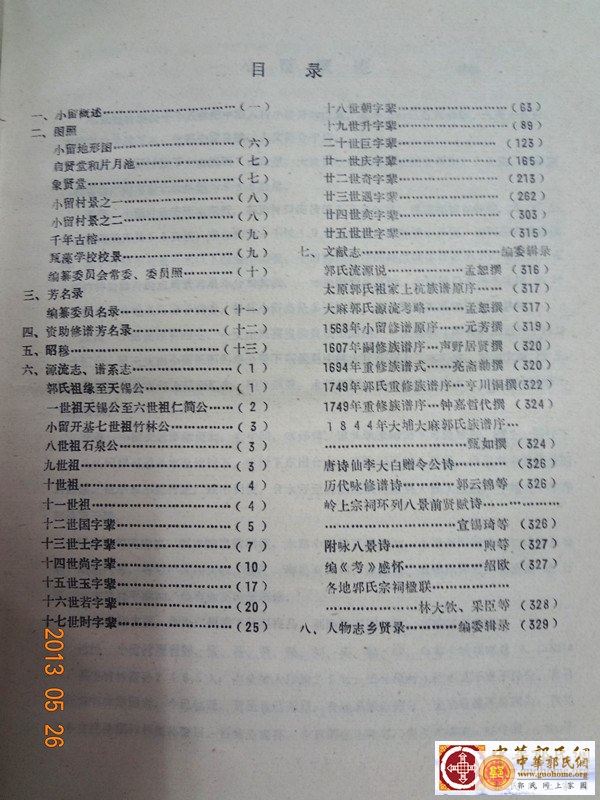 目录
一、小留概述…………………………(一)
二、图照
小留地形图…………………………(六)
自贤堂和片月池…………………(七)
象贤堂………………………………(七)
小留村景之一………………………(八)
小留村景之二………………………(八)
千年古榕……………………………(九)
瓦藻学校校景………………………(九)
编纂委员会常委、委员照…………(十)
三、芳名录
编纂委员名录………………………(十一)
四、资助修谱芳名录………………(十二)
五、昭穆……………………………(十三)
六、源流志、谱系志………………(1)
郭氏祖缘至天锡公…………………(1)
一世祖天锡公至六世祖仁简公……(2)
小留开基七世祖竹林公……………(3)
八世祖石泉公………………………(3)
九世祖………………………………(3)
十世祖………………………………(4)
十一世祖……………………………(4)
十二世国字辈………………………(5)
十三世士字辈………………………(7)
十四世尚字辈………………………(10)
十五世玉字辈………………………(17)
十六世若字辈………………………(20)
十七世时字辈………………………(25)
十八世朝字辈………………………(63)
十九世升字辈………………………(89)
二十世巨字辈………………………(123)
廿一世庆字辈………………………(165)
廿二世奇字辈………………………(213)
廿三世遇字辈………………………(262)
廿四世奕字辈………………………(303)
廿五世世字辈………………………(315)
七、文献志…………………………编委辑录
郭氏流源说………………孟恕撰(316)
太原郭氏祖家上杭族谱原序……(317)
大麻郭氏源流考略………孟恕撰(317)
1568年小留修谱原序……元芳撰(319)
1607年嗣修族谱序…声野居贤撰(320)
1694年重修族谱式……亮斋勘撰(320)
1749年郭氏重修族谱序…亨川铜撰(322)
1749年重修族谱序…钟嘉哲代撰(324)
1844年大埔大麻郭氏族谱序…
……………………………甄如撰(324)
唐诗仙李大白赠令公诗…………(326)
历代咏修谱诗…………郭云锦等(326)
岭上宗祠环列八景前贤赋诗……
……………………………宣锡琦等(326)
附咏八景诗………………煦等(327)
编《考》感怀……………绍欧(327)
各地郭氏宗祠楹联………………
………………林大钦、果臣等(328)
八、人物志乡贤录…………编委辑录(329)
2013 05 26
中华郭氏网
中華郭氏網
www.guohome.org
郭氏网上家园